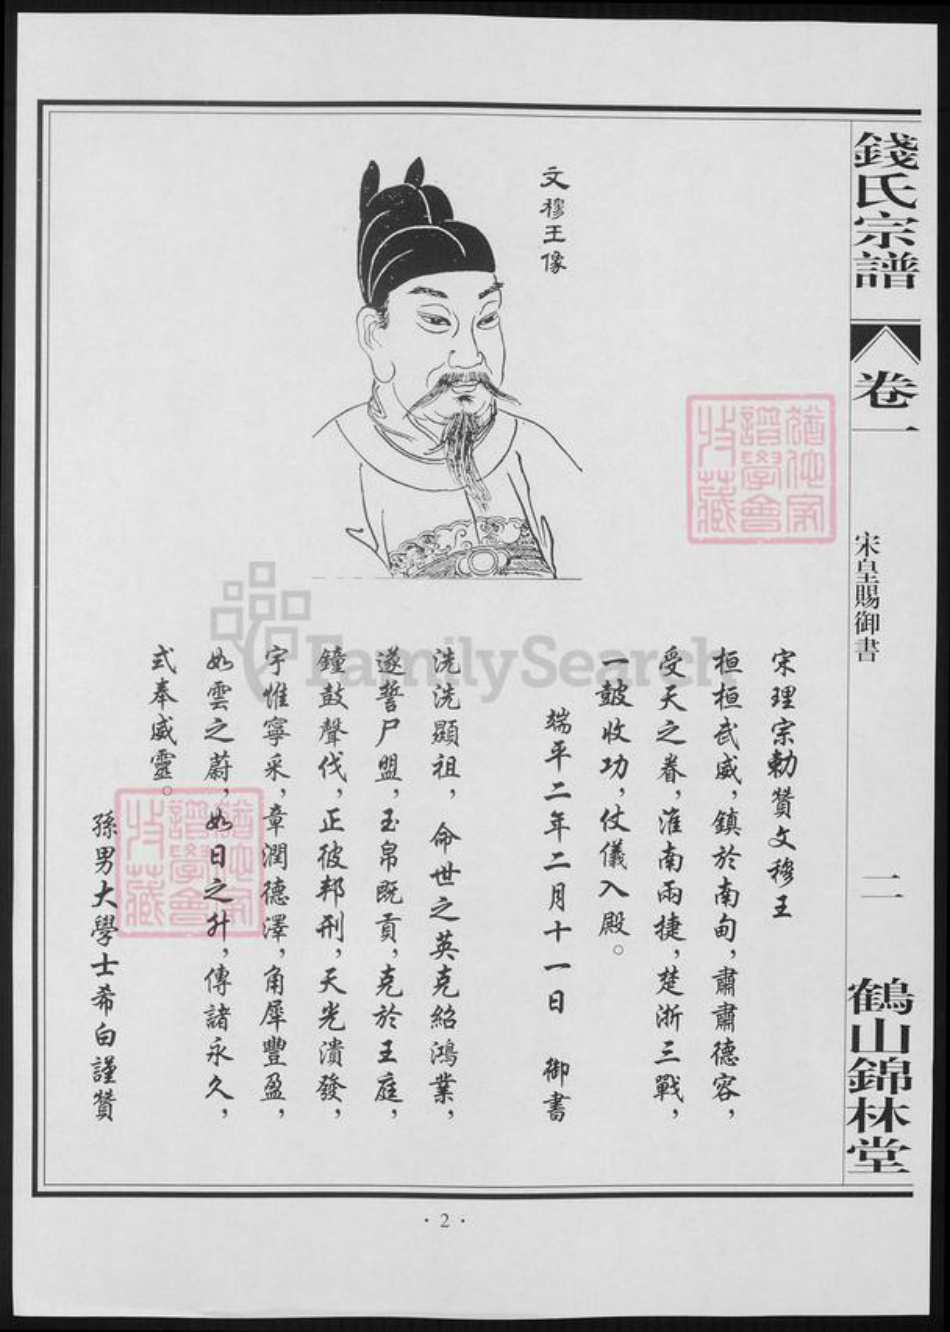 錢氏宗譜
卷一
宋皇賜御書
二
鶴山錦林堂
文穆王像
宋理宗勅贊文穆王
桓桓武威，鎮於南甸，肅肅德容，
受天之眷，淮南兩捷，楚浙三戰，
一皷收功，仗儀入殿。
端平二年二月十一日 御書
洗洗顯祖，命世之英克紹鴻業，
遂誓尸盟，玉帛既貢，克於王庭，
鐘鼓聲伐，正彼邦刑，天光潰發，
宇惟寧采，章潤德澤，角犀豐盈，
如雲之蔚，如日之升，傳諸永久，
式奉威靈。
孫男大學士希白謹贊
FamilySearch
· 2 ·